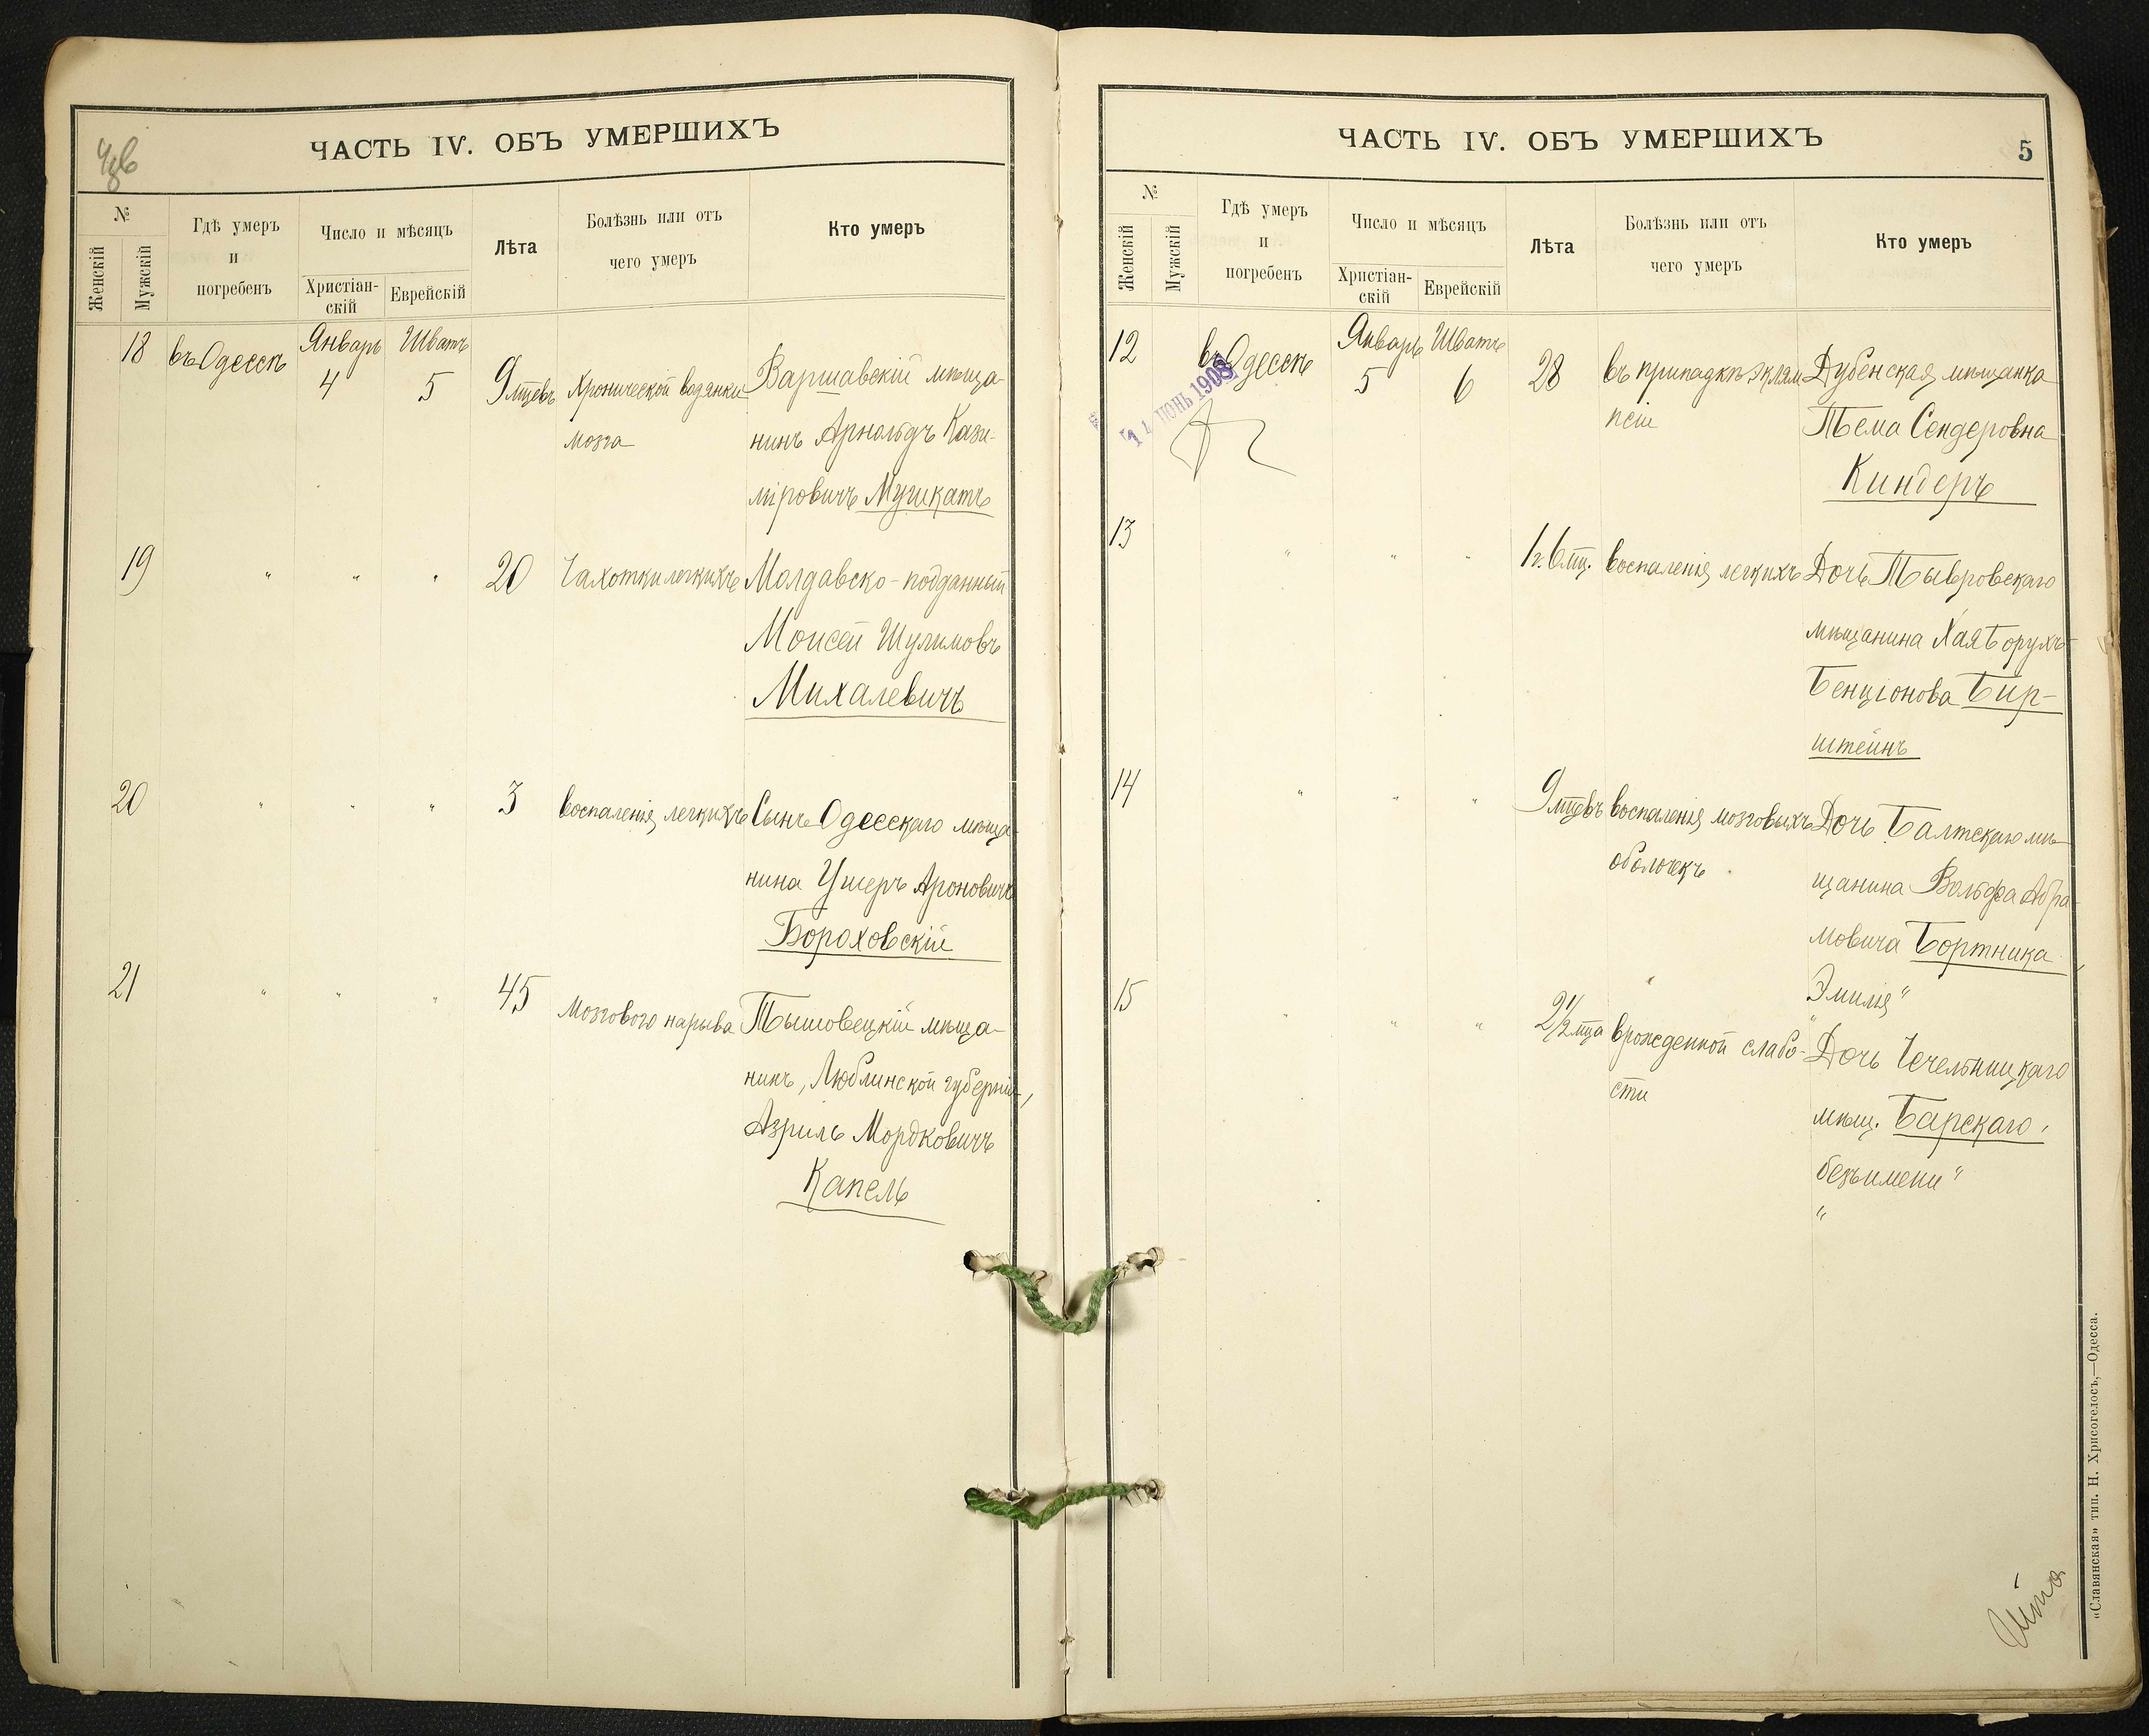 ЧАСТЬ IV. ОБЪ УМЕРШИХЪ
№
Женскій
Мужскій
Гдѣ умеръ
и
погребенъ
Число и мѣсяцъ
Христіан-
скій
Еврейскій
Лѣта
Болѣзнь или отъ
чего умеръ
Кто умеръ
18 въ Одессѣ Январь 4 Шватъ 5 9 мцевъ Хронической водянки Варшавскій мѣща-
мозга нинъ Арнольдъ Кази-
міровичъ Мушкатъ
19 " " " 20 Чахотки легкихъ Молдавско-подданный
Моисей Шулимовъ
Михалевичъ
20 " " " 3 воспаленія легкихъ Сынъ Одесскаго мѣща-
нина Ушеръ Ароновичъ
Бороховскій
21 " " " 45 Мозгового нарыва Тышовецкій мѣща-
нинъ, Люблинской губерніи,
Азриль Мордковичъ
Капель
ЧАСТЬ IV. ОБЪ УМЕРШИХЪ
5
№
Женскій
Мужскій
Гдѣ умеръ
и
погребенъ
Число и мѣсяцъ
Христіан-
скій
Еврейскій
Лѣта
Болѣзнь или отъ
чего умеръ
Кто умеръ
12 въ Одессѣ Январь 5 Шватъ 6 28 въ припадкѣ эклам- Дубенская мѣщанка
псіи Тема Сендеровна
Киндеръ
14 ІЮНЬ 1908
13 " " " 1 г. 6 мц. воспаленія легкихъ Дочь Тывровскаго
мѣщанина Хая Борухъ-
Бенціонова Бир-
штейнъ
14 " " " 9 мцевъ воспаленія мозговыхъ Дочь Балтскаго мѣ-
оболочекъ щанина Вольфа Абра-
мовича Бортника,
Эмилія"
15 " " " 2 1/2 мца врожденной слабо- Дочь Чечельницкаго
сти мѣщ. Барскаго,
"безъимени"
"
«Славянская» тип. Н. Хрисогелосъ,—Одесса.